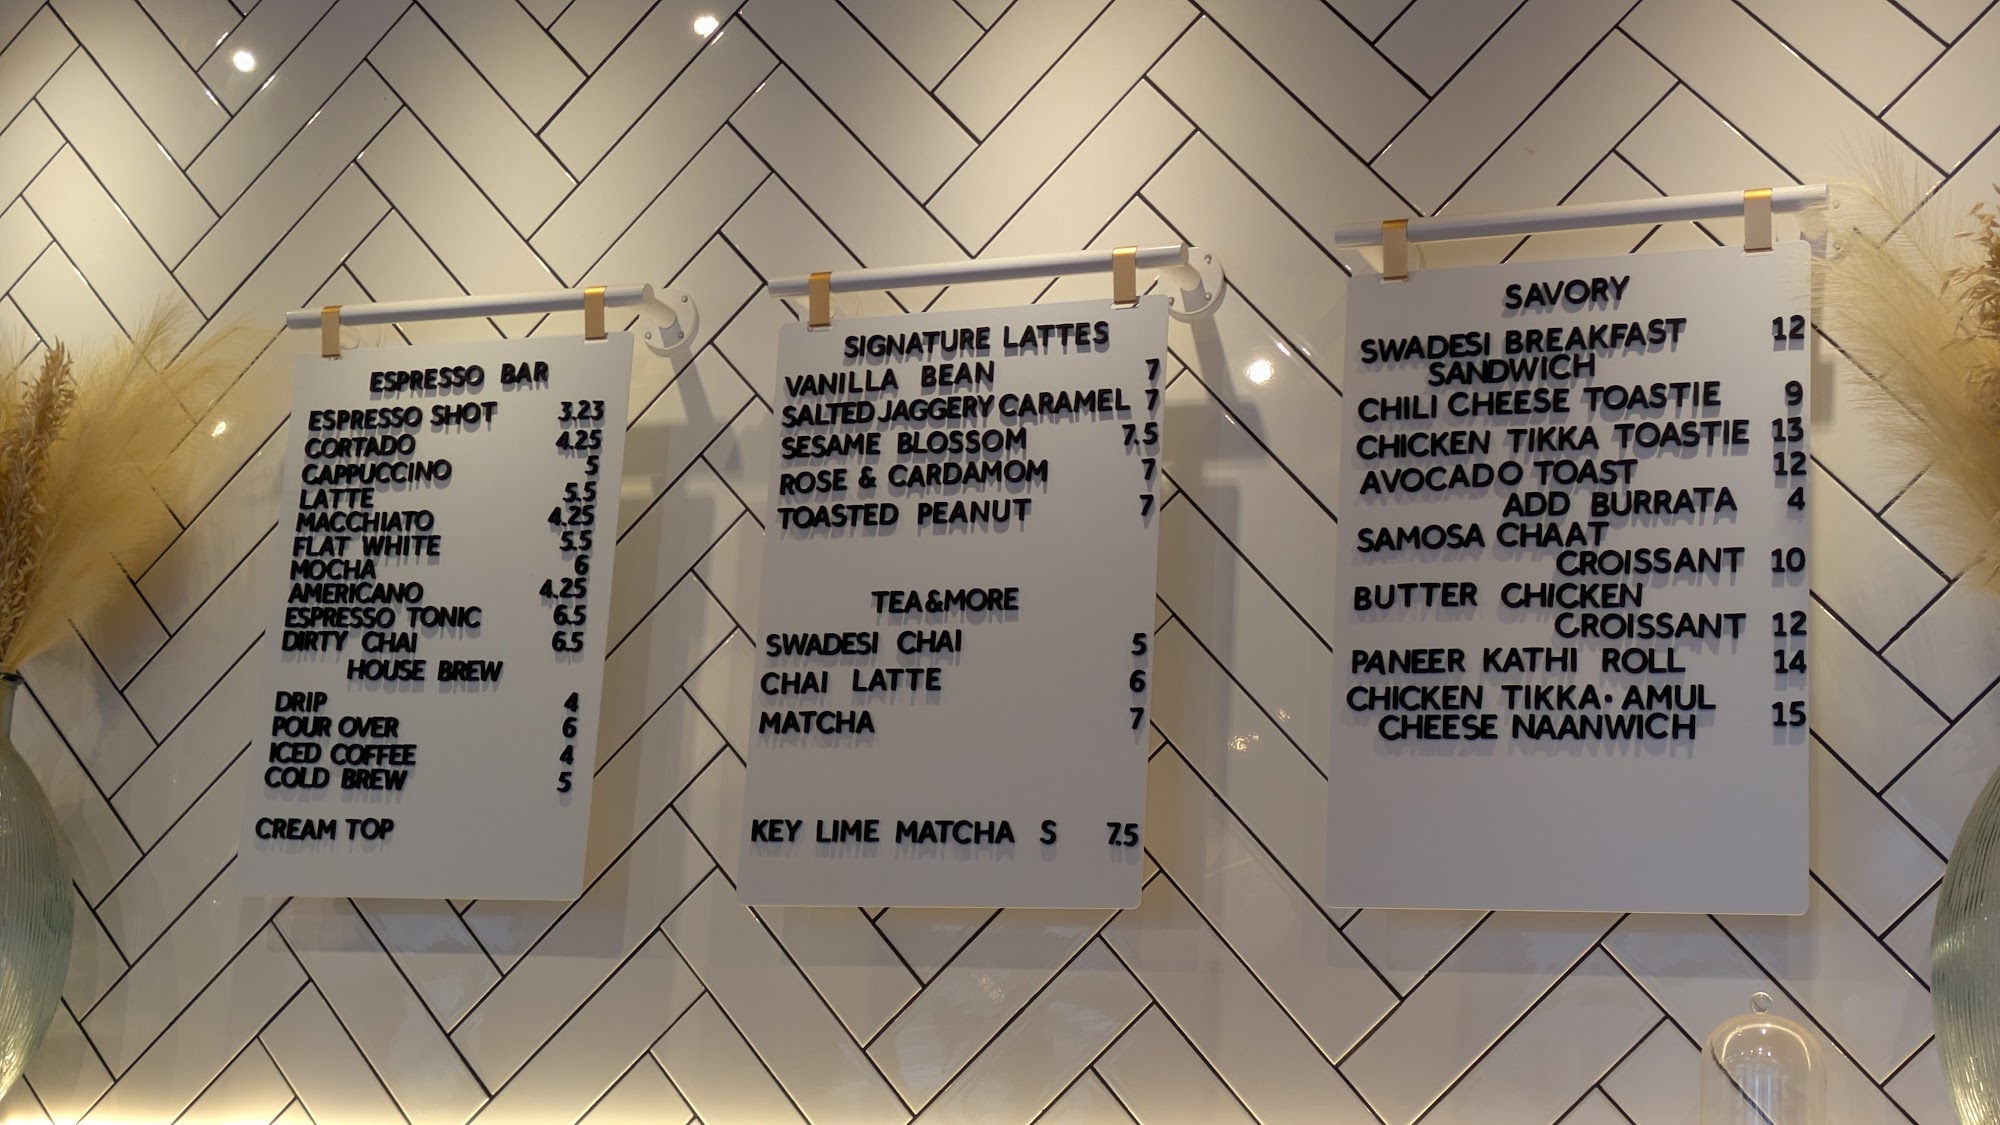 ESPRESSO BAR
ESPRESSO SHOT 3.23
CORTADO 4.25
CAPPUCCINO 5
LATTE 5.5
MACCHIATO 4.25
FLAT WHITE 5.5
MOCHA 6
AMERICANO 4.25
ESPRESSO TONIC 6.5
DIRTY CHAI 6.5
HOUSE BREW
DRIP 4
POUR OVER 6
ICED COFFEE 4
COLD BREW 5
CREAM TOP
SIGNATURE LATTES
VANILLA BEAN 7
SALTED JAGGERY CARAMEL 7
SESAME BLOSSOM 7.5
ROSE & CARDAMOM 7
TOASTED PEANUT 7
TEA&MORE
SWADESI CHAI 5
CHAI LATTE 6
MATCHA 7
KEY LIME MATCHA S 7.5
SAVORY
SWADESI BREAKFAST 12
SANDWICH
CHILI CHEESE TOASTIE 9
CHICKEN TIKKA TOASTIE 13
AVOCADO TOAST 12
ADD BURRATA 4
SAMOSA CHAAT
CROISSANT 10
BUTTER CHICKEN
CROISSANT 12
PANEER KATHI ROLL 14
CHICKEN TIKKA• AMUL
CHEESE NAANWICH 15